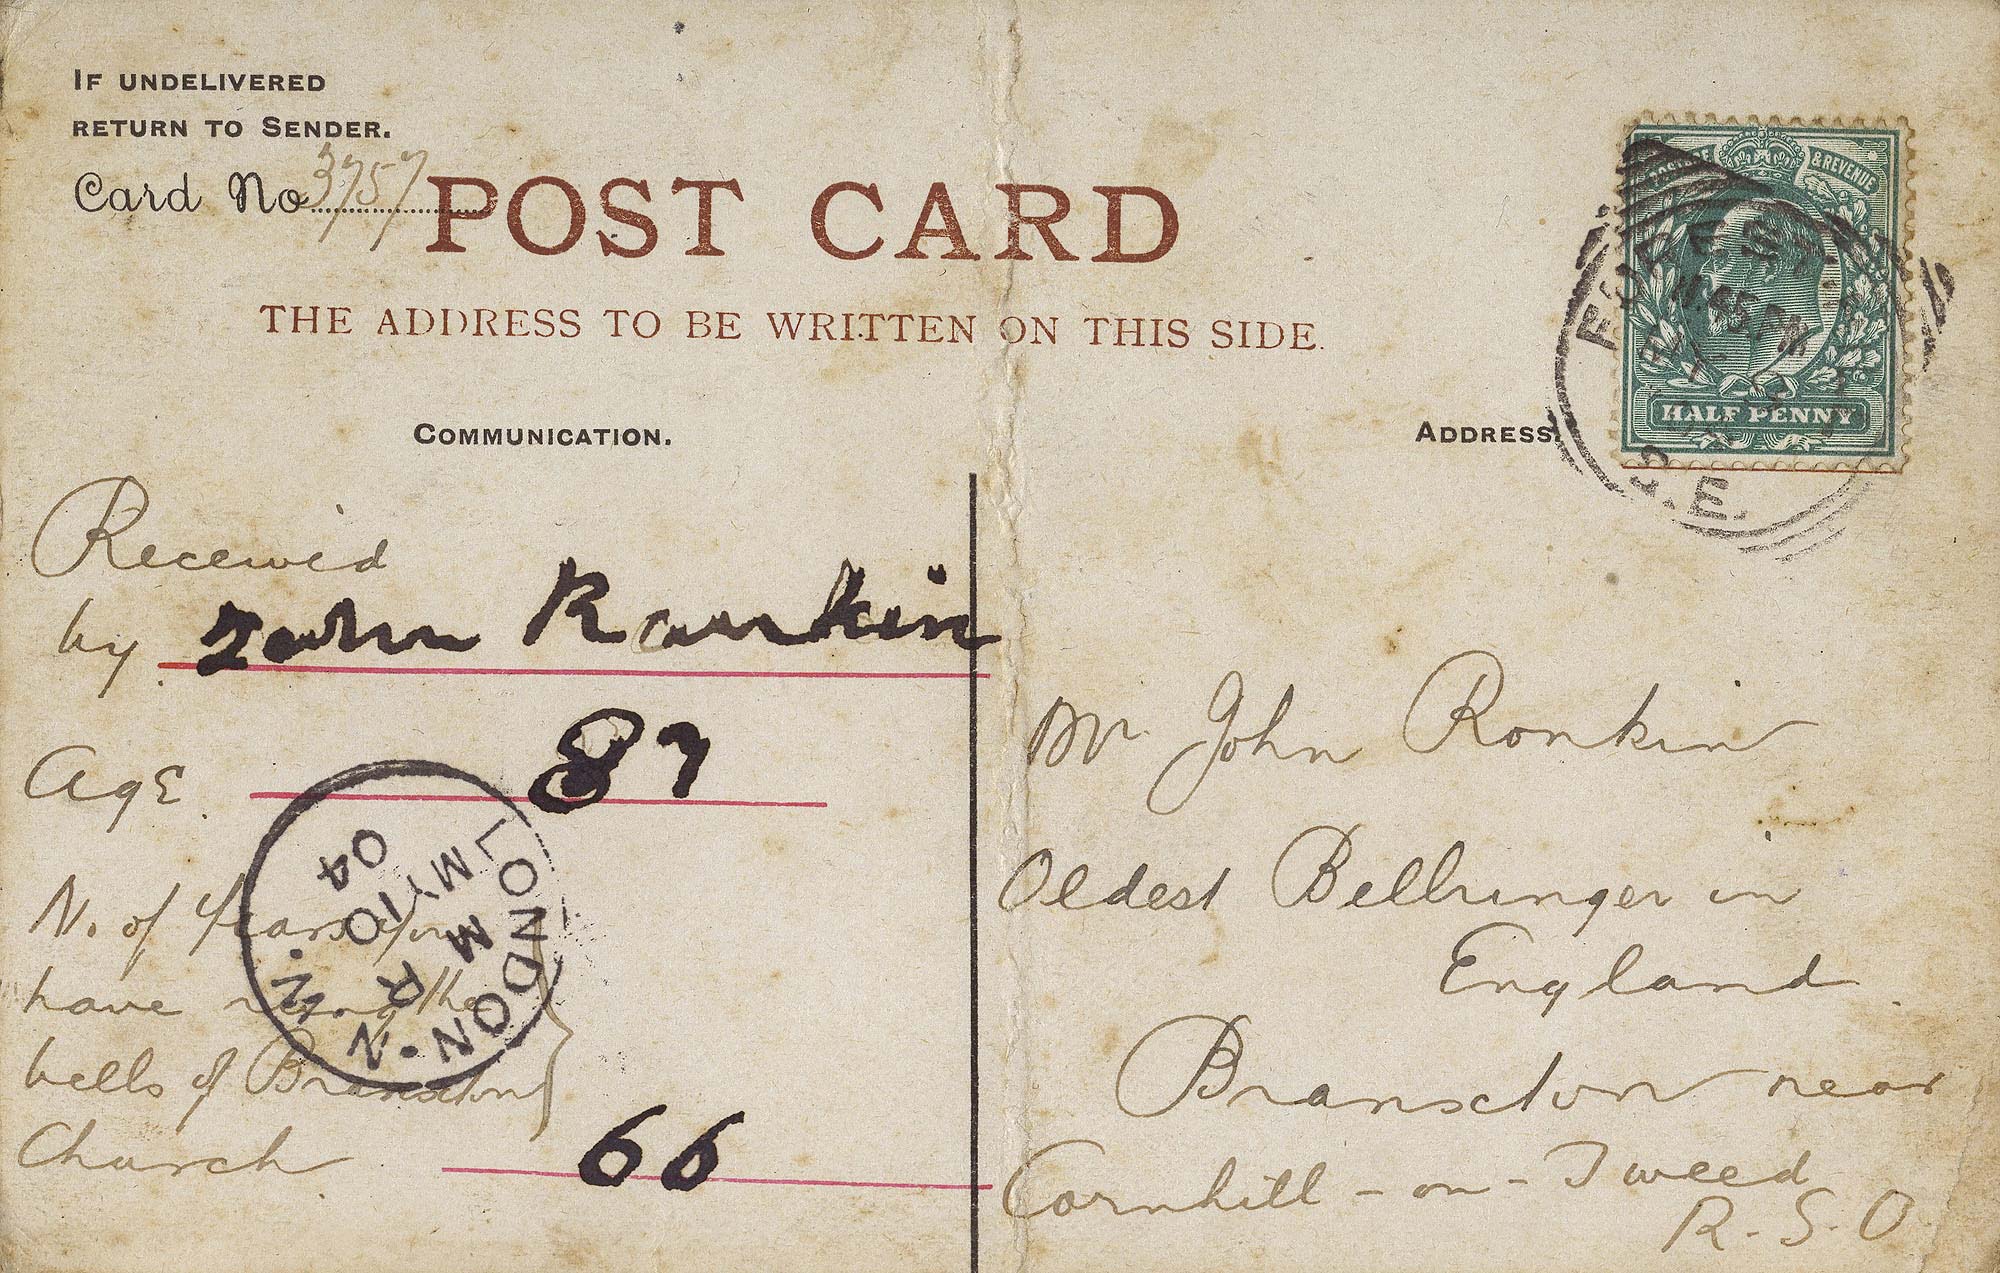 IF UNDELIVERED
RETURN TO SENDER.
Card No 3757
POST CARD
THE ADDRESS TO BE WRITTEN ON THIS SIDE.
COMMUNICATION.
Received
by John Rankin
Age 87
No. of years you
have rung the
bells of Branxton
Church 66
LONDON. N.
M R
MY 10
04
ADDRESS.
POSTAGE & REVENUE
HALF PENNY
FOREST
11.45 PM
S.E.
Mr John Ronkin
Oldest Bellringer in
England
Branxton near
Cornhill-on-Tweed
R.S.O